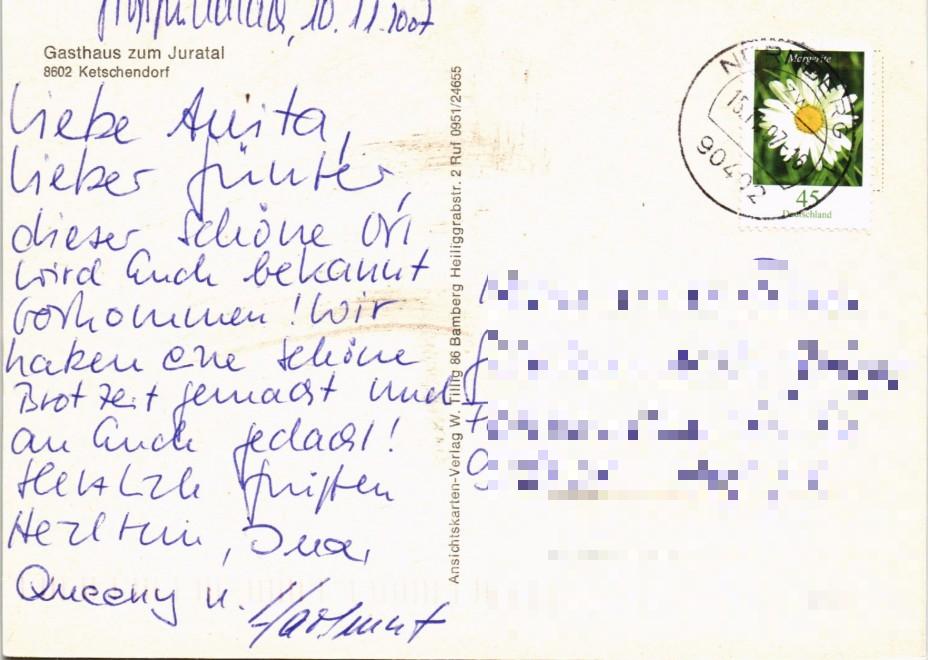 10.11.2007
Gasthaus zum Juratal
8602 Ketschendorf
Liebe Anita,
Lieber Günter,
dieser schöne Ort
wird Euch bekannt
vorkommen! Wir
haben eine schöne
Brotzeit gemacht und
an Euch gedacht!
Herzliche Grüßen
Queeny u. Hartmut
Ansichtskarten-Verlag W. Tillig 86 Bamberg Heiliggrabstr. 2 Ruf 0951/24655
NÜRNBERG
90402
Margerite
45
Deutschland